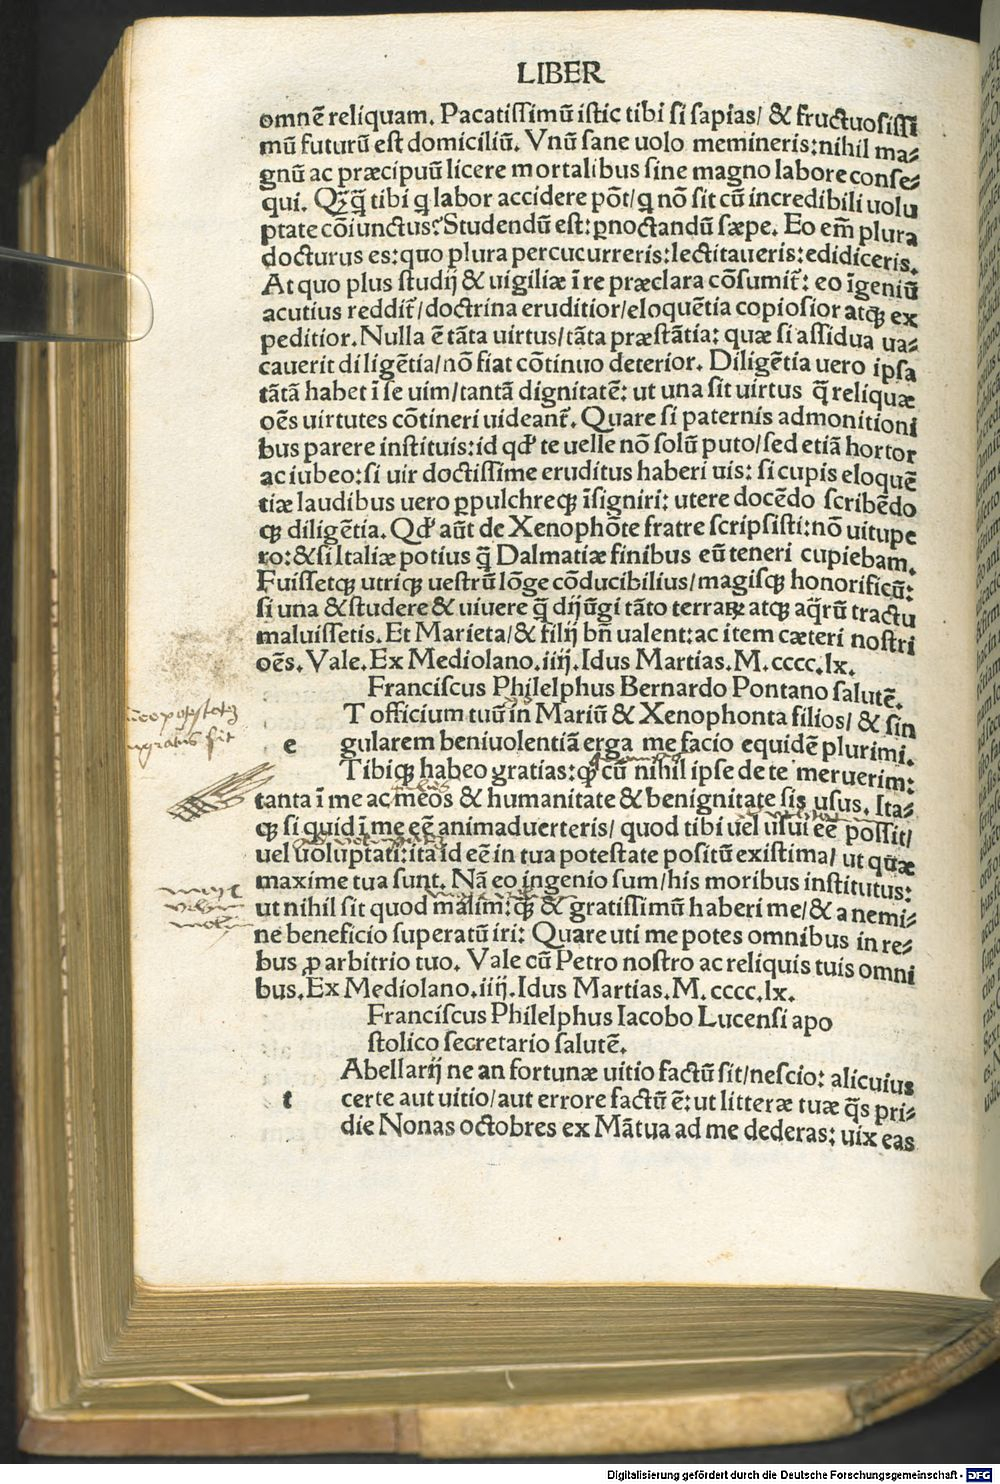 LIBER
omnē reliquam. Pacatissimū istic tibi si sapias/ & fructuosissi
mū futurū est domiciliū. Vnū sane uolo memineris: nihil ma-
gnū ac præcipuū licere mortalibus sine magno labore conse-
qui. Qꝫq̄ tibi q labor accidere pōt/q nō sit cū incredibili uolu
ptate cōiunctus? Studendū est: ꝑnoctandū sæpe. Eo em̄ plura
docturus es: quo plura percucurreris: lectitaueris: edidiceris.
At quo plus studij & uigiliæ ī re præclara cōsumit̄: eo īgeniū
acutius reddit̄/doctrina eruditior/eloquētia copiosior atqꝫ ex
peditior. Nulla ē tāta uirtus/tāta præstātia: quæ si assidua ua-
cauerit diligētia/nō fiat cōtinuo deterior. Diligētia uero ipsa
tātā habet ī se uim/tantā dignitatē: ut una sit uirtus q̄ reliquæ
oēs uirtutes cōtineri uideant̄. Quare si paternis admonitioni
bus parere instituis: id qđ te uelle nō solū puto/sed etiā hortor
ac iubeo: si uir doctissime eruditus haberi uis: si cupis eloquē
tiæ laudibus uero ꝑpulchreqꝫ īsigniri: utere docēdo scribēdo
qꝫ diligētia. Qđ aūt de Xenophōte fratre scripsisti: nō uitupe
ro: & si Italiæ potius q̄ Dalmatiæ finibus eū teneri cupiebam.
Fuissetqꝫ utriqꝫ uestrū lōge cōducibilius/magisqꝫ honorificū:
si una & studere & uiuere q̄ dijūgi tāto terraꝝ atqꝫ aq̄rū tractu
maluissetis. Et Marieta/& filij bn̄ ualent: ac item cæteri nostri
oēs. Vale. Ex Mediolano. iiij. Idus Martias. M. cccc. lx.
Franciscus Philelphus Bernardo Pontano salutē.
T officium tuū in Mariū & Xenophonta filios/ & sin
e gularem beniuolentiā erga me facio equidē plurimi.
Tibiqꝫ habeo gratias: qꝫ cū nihil ipse de te meruerim:
tanta ī me ac meos & humanitate & benignitate sis usus. Ita-
qꝫ si quid ī me eē animaduerteris/ quod tibi uel usui eē possit/
uel uoluptati: ita id eē in tua potestate positū existima/ ut quæ
maxime tua sunt. Nā eo ingenio sum/his moribus institutus:
ut nihil sit quod malim: qꝫ & gratissimū haberi me/& a nemi-
ne beneficio superatū iri: Quare uti me potes omnibus in re-
bus ꝓ arbitrio tuo. Vale cū Petro nostro ac reliquis tuis omni
bus. Ex Mediolano. iiij. Idus Martias. M. cccc. lx.
Franciscus Philelphus Iacobo Lucensi apo
stolico secretario salutē.
Abellarij ne an fortunæ uitio factū sit/nescio: alicuius
t certe aut uitio/aut errore factū ē: ut litteræ tuæ q̄s pri-
die Nonas octobres ex Mātua ad me dederas: uix eas
Digitalisierung gefördert durch die Deutsche Forschungsgemeinschaft - DFG